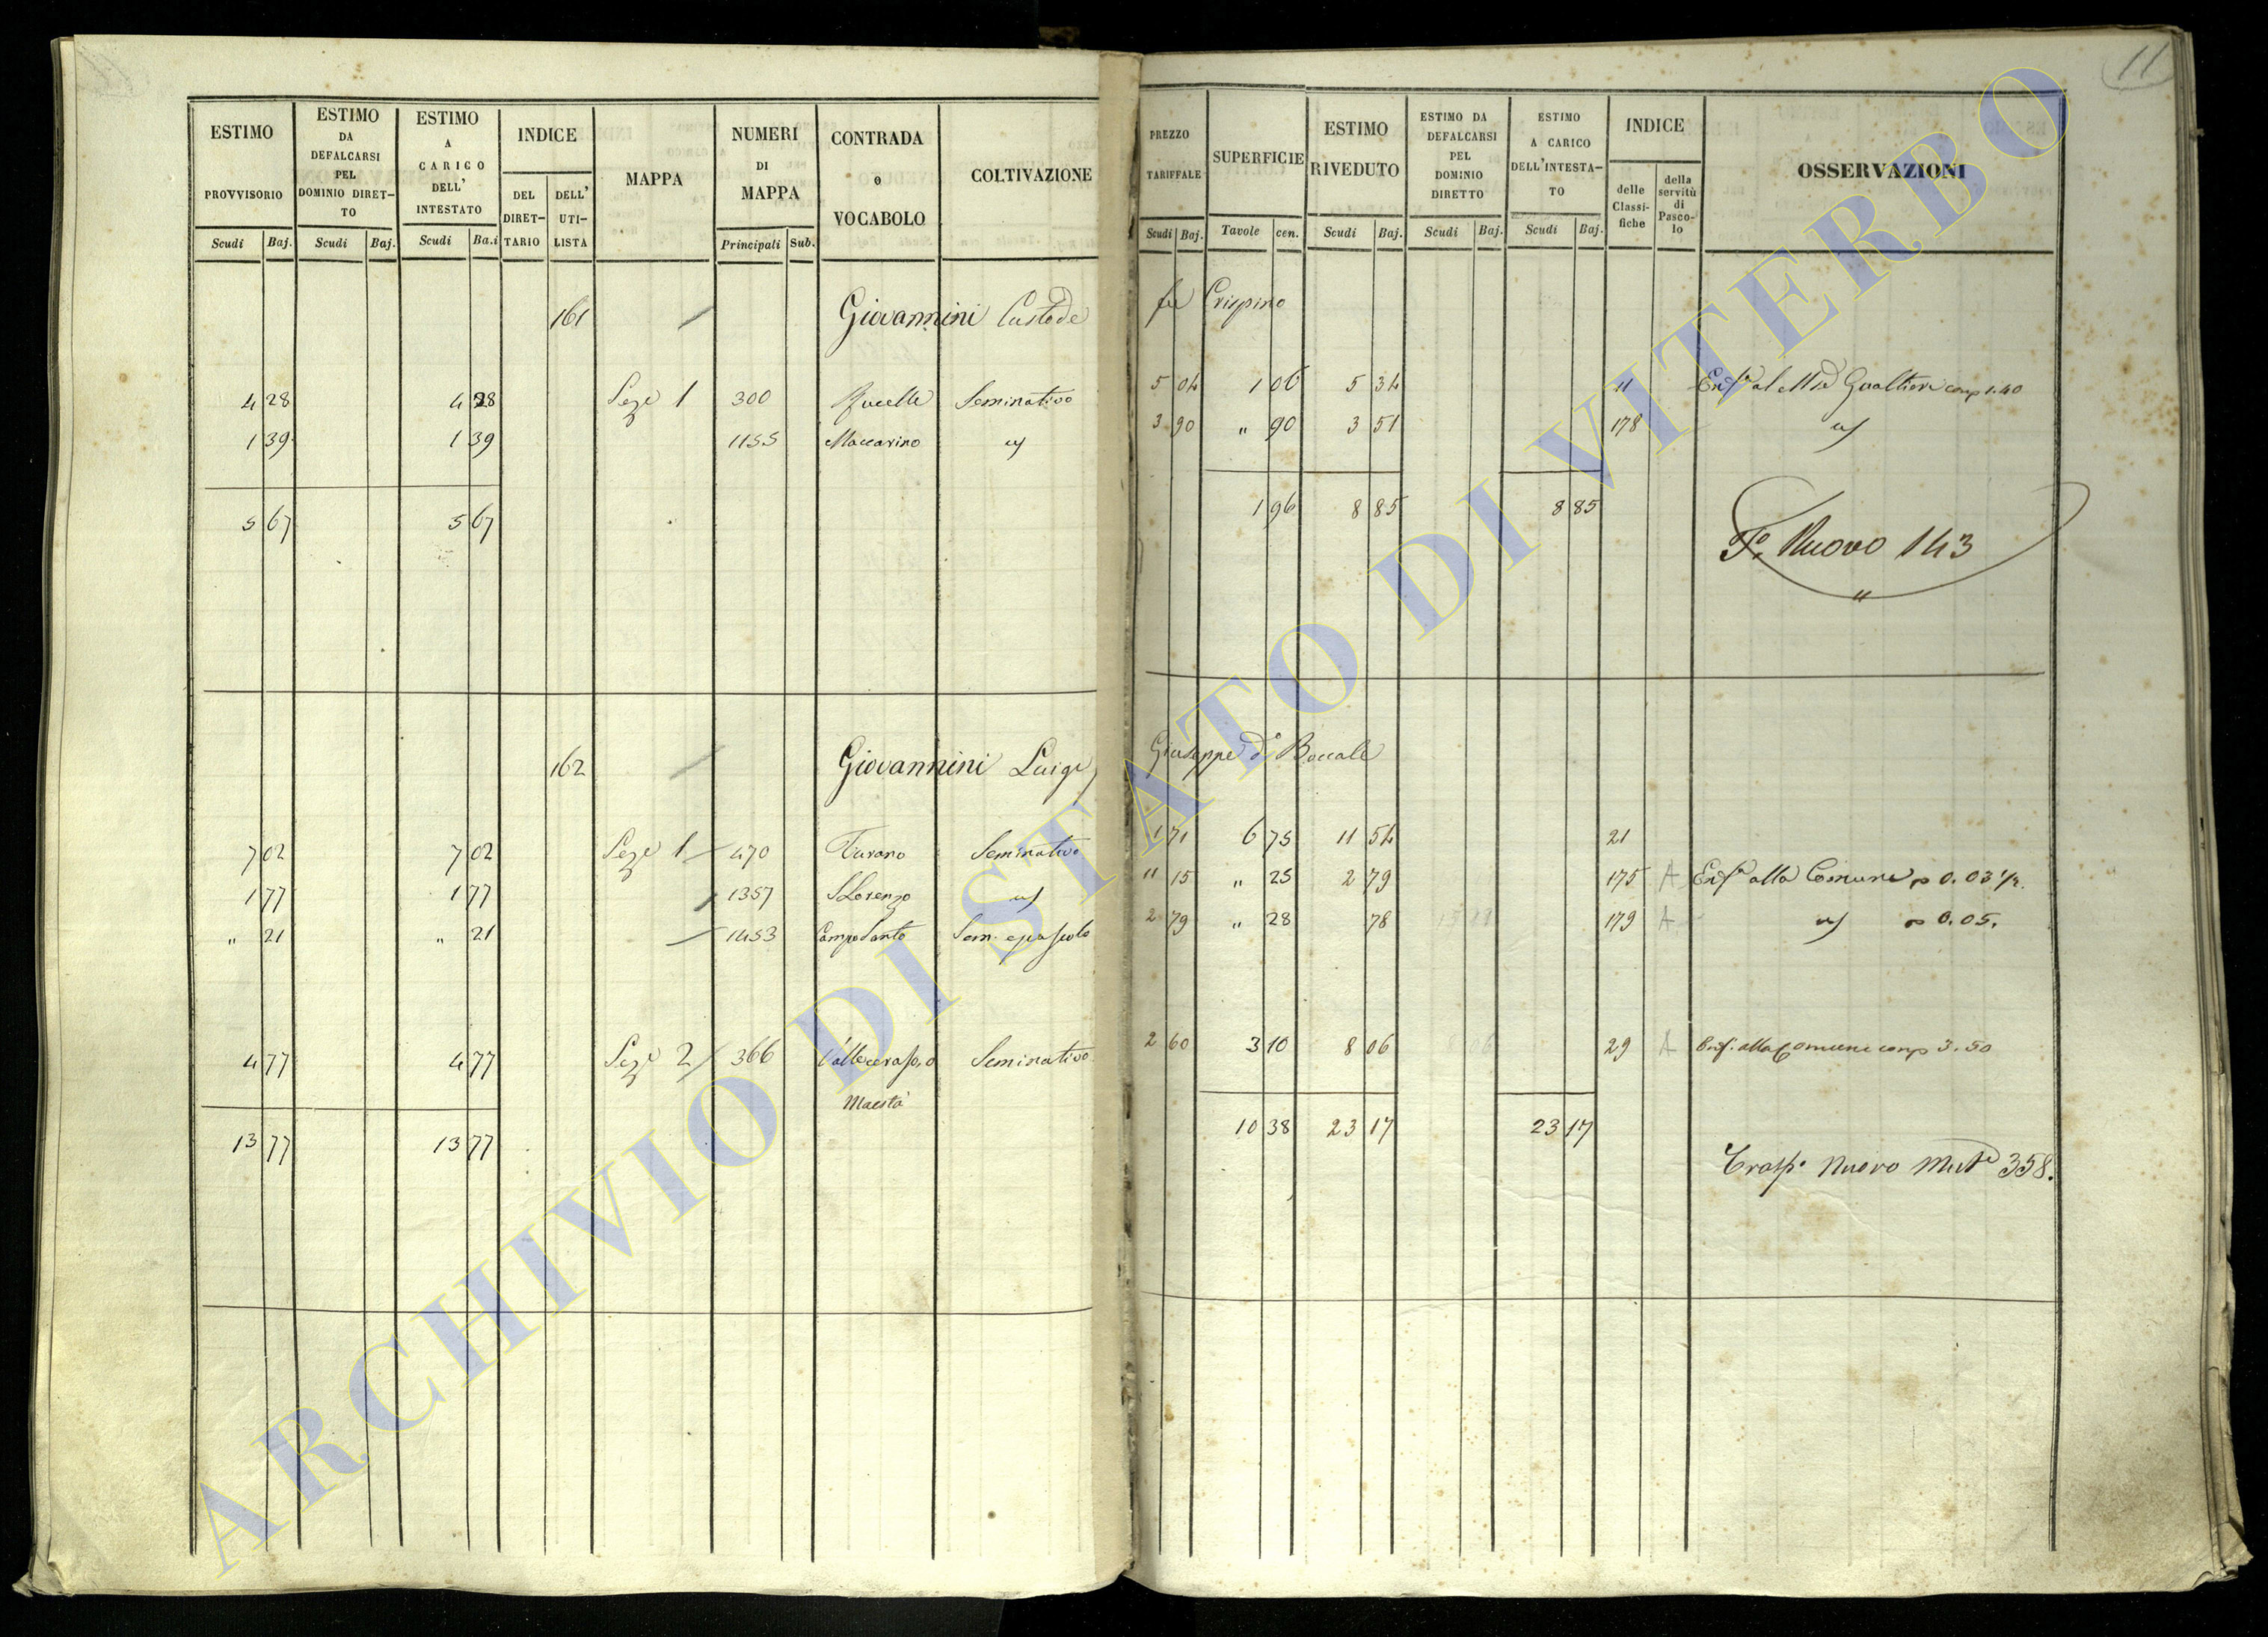 11
ESTIMO PROVVISORIO Scudi Baj.
ESTIMO DA DEFALCARSI PEL DOMINIO DIRET-TO Scudi Baj.
ESTIMO A CARICO DELL' INTESTATO Scudi Ba.i
INDICE DEL DIRET-TARIO DELL' UTI-LISTA
MAPPA
NUMERI DI MAPPA Principali Sub.
CONTRADA o VOCABOLO
COLTIVAZIONE
PREZZO TARIFFALE Scudi Baj.
SUPERFICIE Tavole cen.
ESTIMO RIVEDUTO Scudi Baj.
ESTIMO DA DEFALCARSI PEL DOMINIO DIRETTO Scudi Baj.
ESTIMO A CARICO DELL'INTESTA-TO Scudi Baj.
INDICE delle Classi-fiche della servitù di Pasco-lo
OSSERVAZIONI
161 Giovannini Custode fu Crispino
4 28 4 28 Seze 1 300 Seminativo 5 04 1 06 5 34 11 Gualtieri 1.40
1 39 1 39 1155 Maccarino 3 90 " 90 3 51 178
5 67 5 67 1 96 8 85 8 85
Fo. Nuovo 143
"
162 Giovannini Luigi Giuseppe do Boccale
7 02 7 02 Seze 1 470 Turano Seminativo 1 71 6 75 11 54 21
1 77 1 77 1357 SLorenzo 11 15 " 25 2 79 175 A alla Comune 0.03 ½.
" 21 " 21 1453 Camposanto Sem. e pascolo 2 79 " 28 78 179 A 0.05.
4 77 4 77 Seze 2 366 Valleceraso, o Seminativo 2 60 3 10 8 06 29 A Enf. alla Comune 3.50
Maestà
13 77 13 77 10 38 23 17 23 17
Trasp. Nuovo 358.
ARCHIVIO DI STATO DI VITERBO